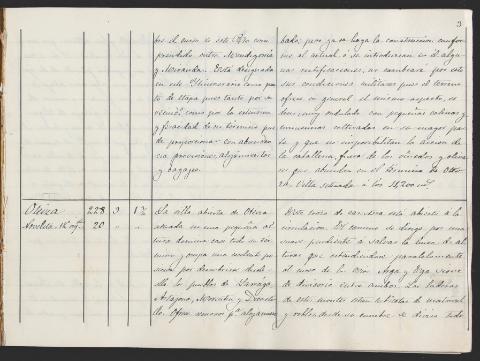 3
por el curso de este Rio com
prendido entre Mendigorria
y Miranda. Está designada
en este Itinerario como pun
to de etapa pues tanto por su
como por la extension
y feracidad de su término pue
de proporcionar con abundan
cia provisiones, alojamientos
y bagajes.
bado; pero ya se haga la construccion conforme
al actual ó se introduzcan en él algu
nas rectificaciones, no cambiará por esto
sus condiciones militares pues el terreno
ofrece en general el mismo aspecto, es
decir, muy ondulado con pequeñas colinas y
eminencias cultivadas en su mayor par
te y que no imposibilitan la accion de
la caballeria fuera de los viñedos y oliva
res que abundan en el término de
Villa situada á los 18,200 m.
Oteiza 228 9 1 1/2
20 " "
La villa abierta de Oteiza
situada en una pequeña al
tura domina casi todo su tér
mino y ocupa una escelente po
sicion por descubrirse desde
ella los pueblos de Larraga
Artajona, Morentin y Dicasti
llo. Ofrece recursos pa alojamien
Este trozo de carretera está abierto á la
circulacion. El camino se dirige por una
suave pendiente á salvar la linea de al
turas que estendiendose paralelamente
al curso de los rios Arga y Ega sirve
de divisoria entre ambos. Las laderas
de estos montes están cubiertas de matorral
y robledal de su cumbre se divisa todo